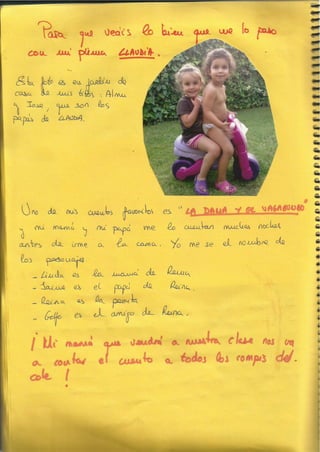 Para que veáis lo bien que me lo paso
con mi prima CLAUDIA.
Esta foto es en jardín de
casa de mis titos: Alma
y Jose, que son los
papás de CLAUDIA.
Uno de mis cuentos favoritos es "LA DAMA Y EL VAGABUNDO"
y mi mamá y mi papá me lo cuentan muchas noches
antes de irme a la cama. Yo me se el nombre de
los personajes
- Linda es la mamá de Reina.
- Jaime es el papá de Reina.
- Reina es la perrita
- Golfo es el amigo de Reina.
¡Mi mamá que vendrá a nuestra clase nos va
a contar el cuento a todos los compis del
cole!